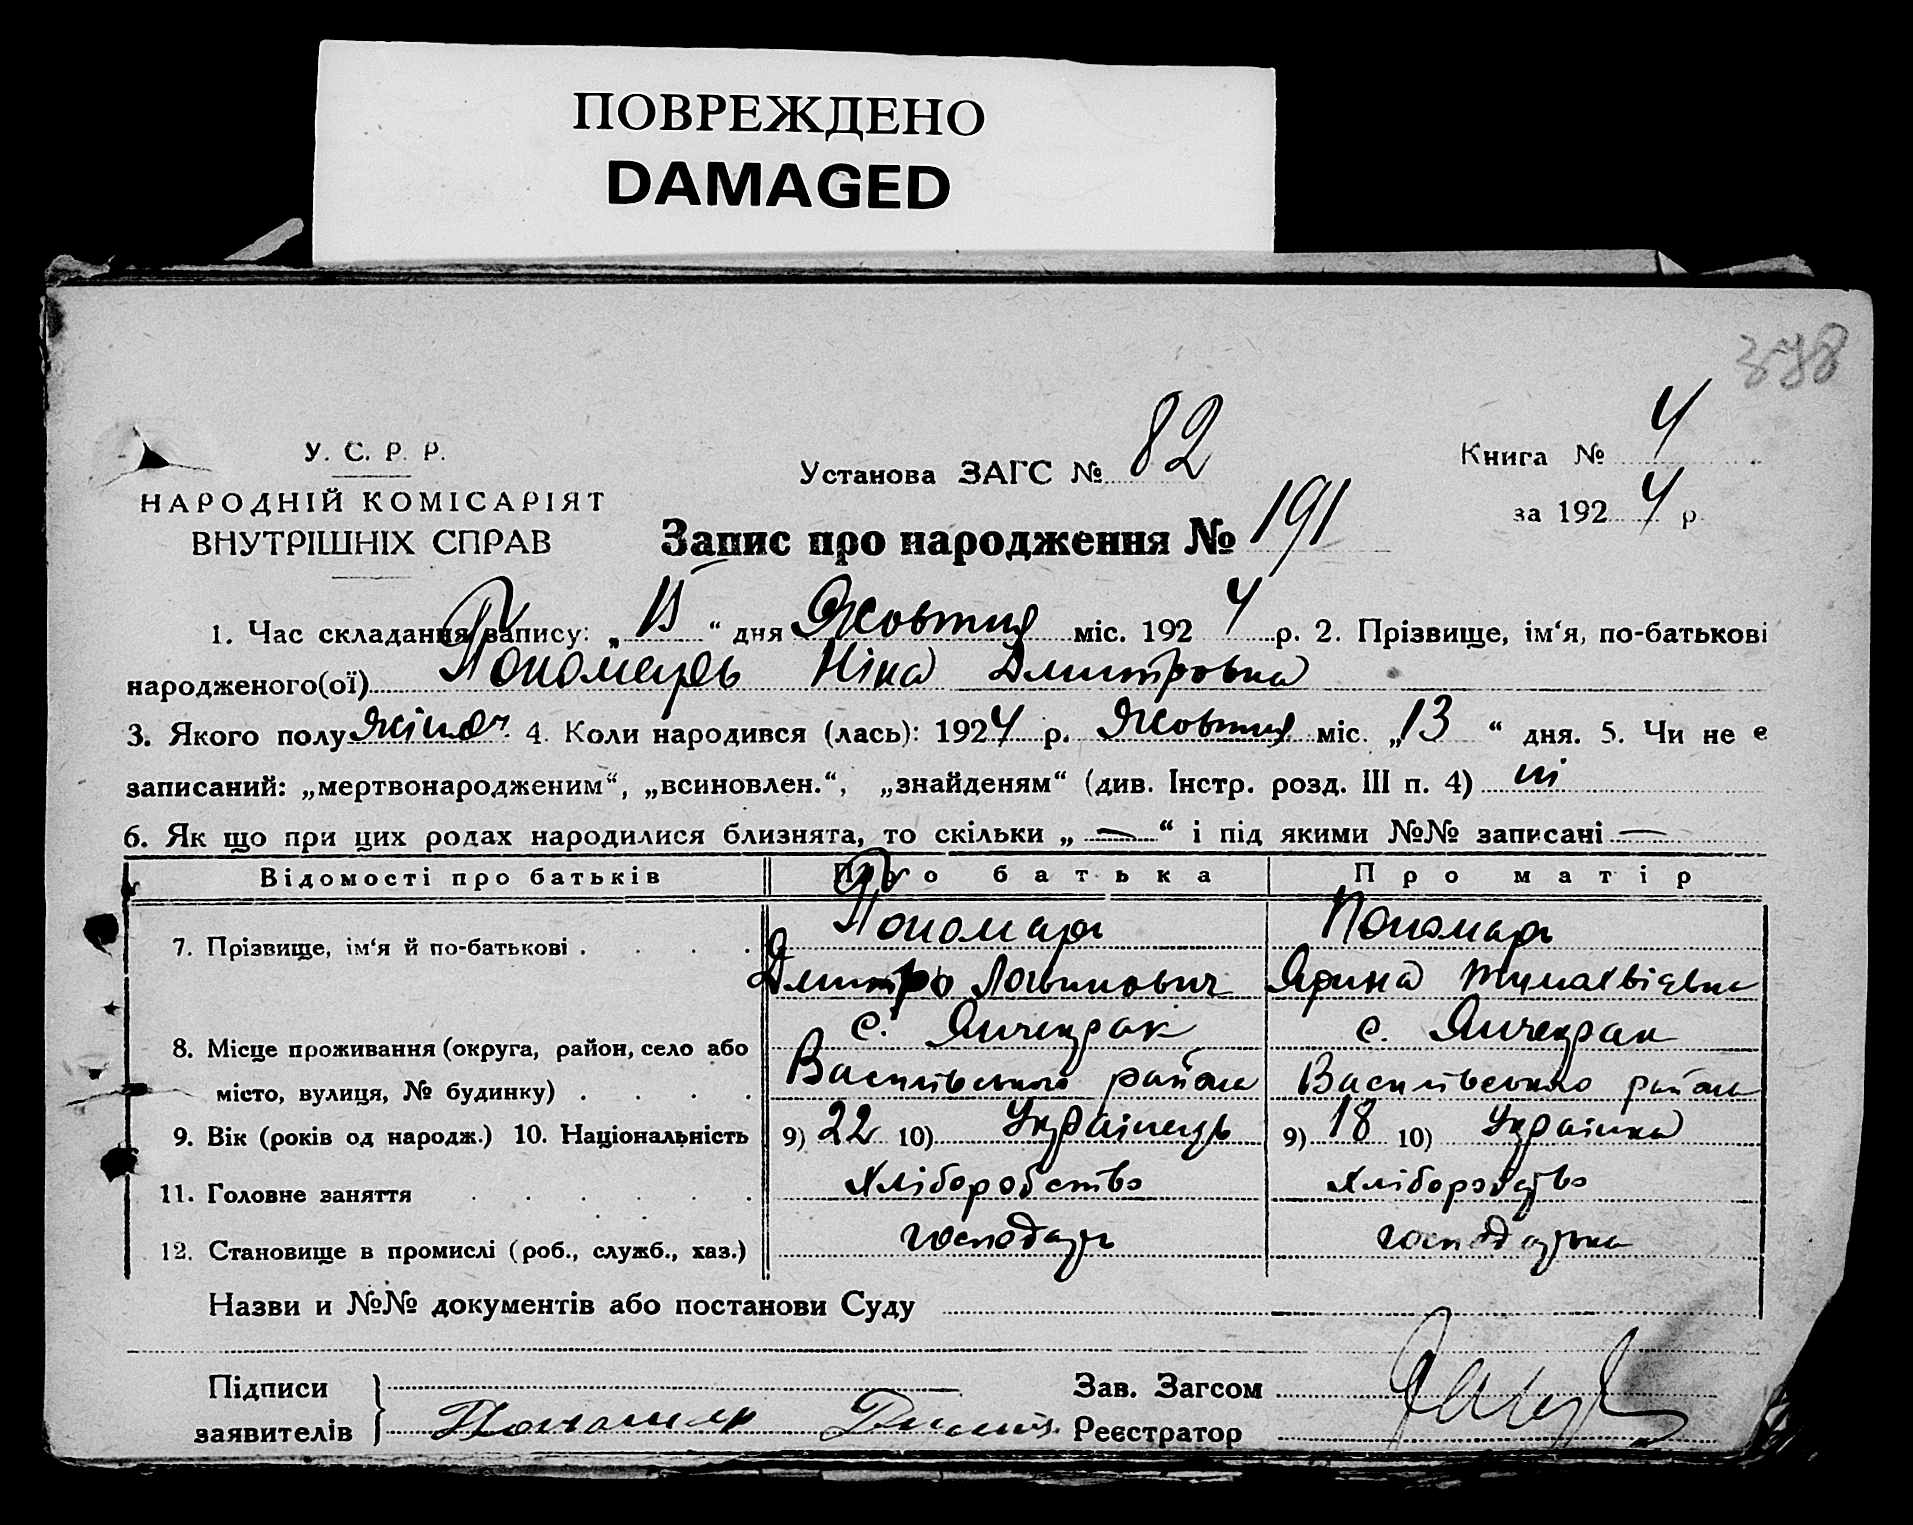 ПОВРЕЖДЕНО
DAMAGED
У. С. Р. Р.
НАРОДНІЙ КОМІСАРІЯТ
ВНУТРІШНІХ СПРАВ
Установа ЗАГС № 82
Книга № 4
за 192 4 р.
Запис про народження № 191
1. Час складання запису: „ 15 “ дня Жовтня міс. 192 4 р. 2. Прізвище, ім‘я, по-батькові
народженого(ої) Пономарь Ніна Дмитровна
3. Якого полу жіноч. 4. Коли народився (лась): 192 4 р. Жовтня міс. „ 13 “ дня. 5. Чи не е
записаний: „мертвонародженим“, „всиновлен.“, „знайденям“ (див. Інстр. розд. III п. 4) ні
6. Як що при цих родах народилися близнята, то скільки „ — “ і під якими №№ записані —
Відомості про батьків Про батька Про матір
7. Прізвище, ім‘я й по-батькові Пономарь Пономарь
Дмитро Логвинович Ярина
8. Місце проживання (округа, район, село або с. Янчекрак с. Янчекрак
місто, вулиця, № будинку) Василівського району Василівського району
9. Вік (років од народж.) 10. Національність 9) 22 10) Українець 9) 18 10) Українка
11. Головне заняття Хліборобство Хліборобство
12. Становище в промислі (роб., служб., хаз.) господарь господарька
Назви и №№ документів або постанови Суду
Підписи
заявителів Пономар
Зав. Загсом
Реєстратор